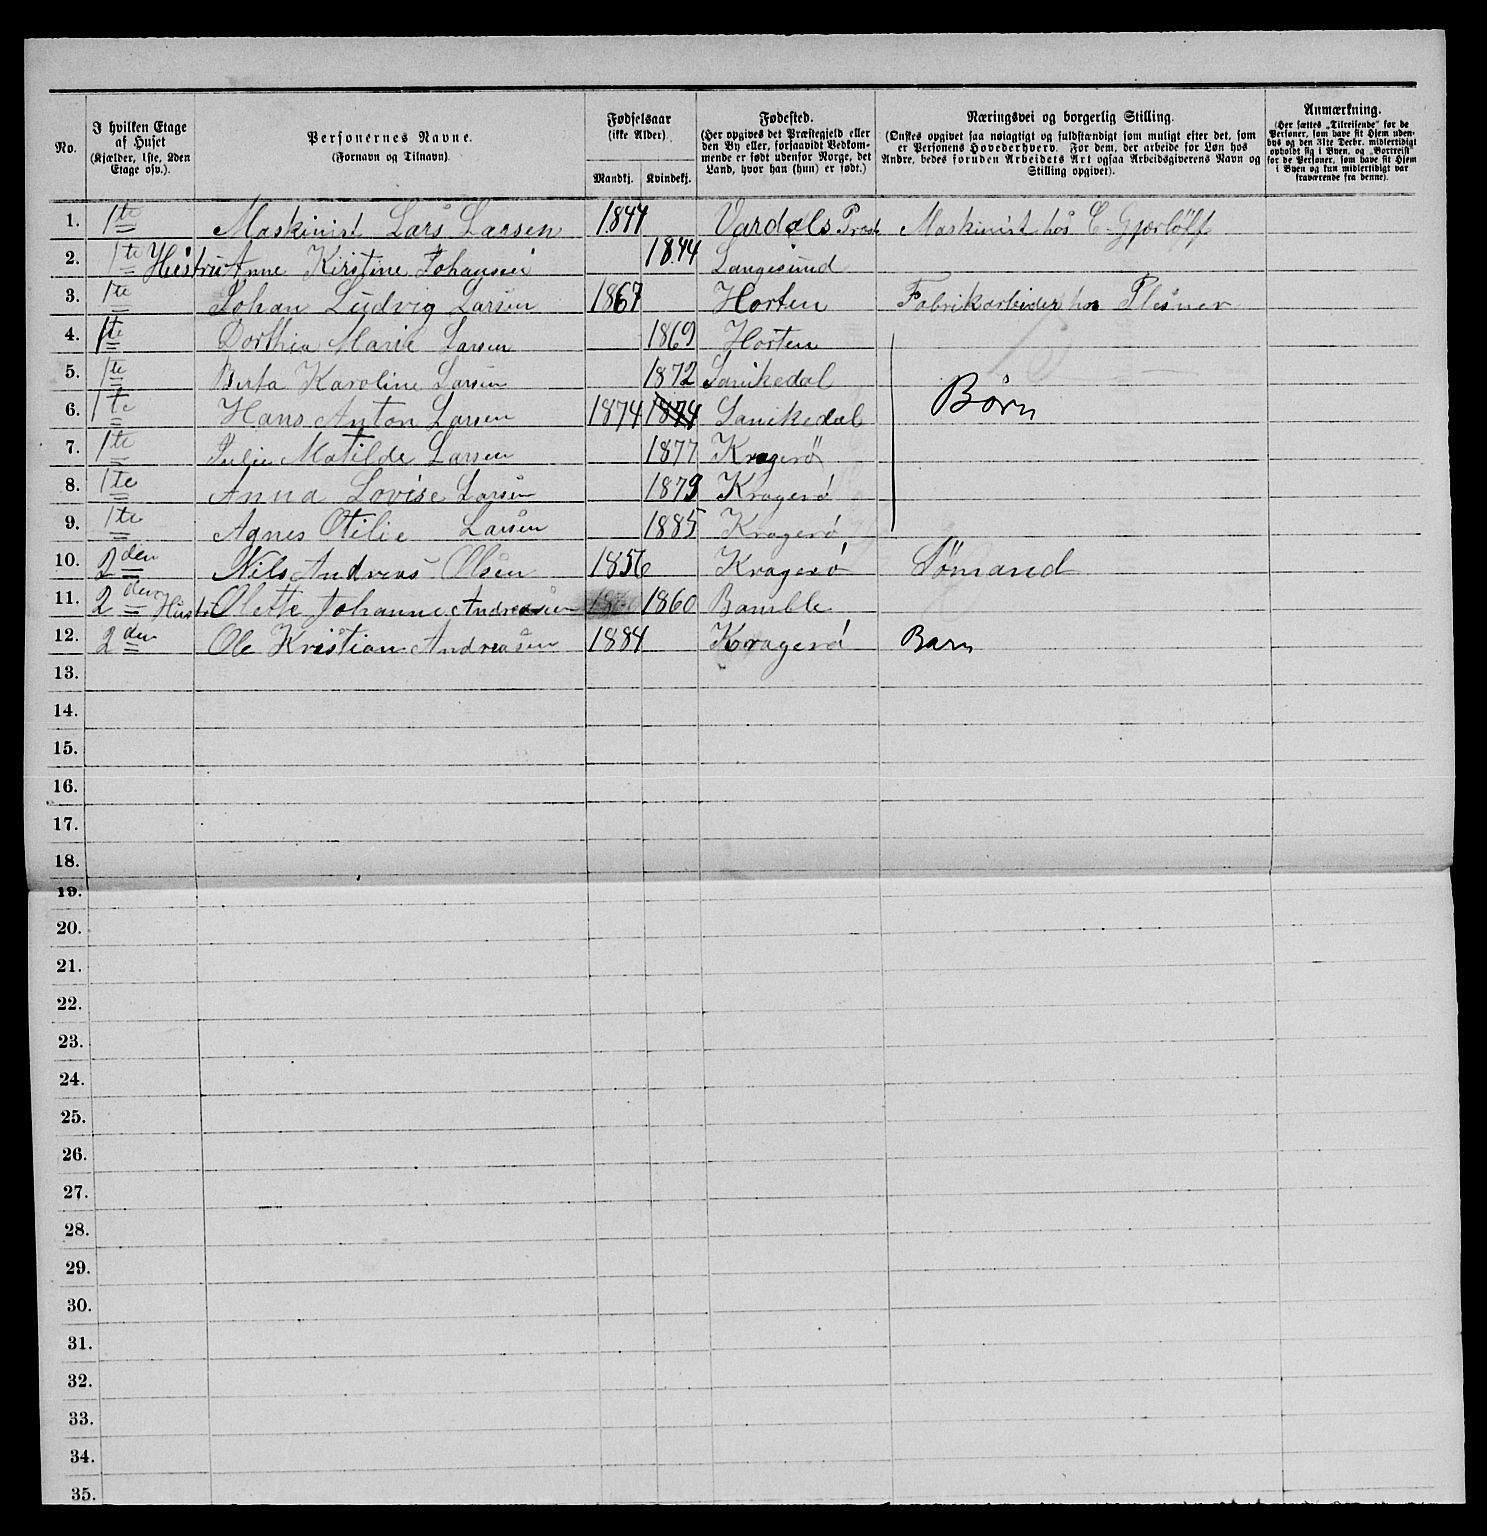 No.
I hvilken Etage af Huset (Kjælder, 1ste, 2den Etage osv.).
Personernes Navne. (Fornavn og Tilnavn).
Fødselsaar (ikke Alder). Mandkj. Kvindekj.
Fødested. (Her opgives det Præstegjeld eller den By eller, forsaavidt Vedkommende er født udenfor Norge, det Land, hvor han (hun) er født.)
Næringsvei og borgerlig Stilling. (Ønskes opgivet saa nøiagtigt og fuldstændigt som muligt efter det, som er Personens Hovederhverv. For dem, der arbeide for Løn hos Andre, bedes foruden Arbeidets Art ogsaa Arbeidsgiverens Navn og Stilling opgivet).
Anmærkning. (Her sættes „Tilreisende" for de Personer, som have sit Hjem udenbys og den 31te Decbr. midlertidigt opholdt sig i Byen, og „Bortreist" for de Personer, som have sit Hjem i Byen og kun midlertidigt var fraværende fra denne).
1. 1te Maskinist Lars Larsen 1844 Vardals Præst Maskinist hos C. Gjerløff
2. 1te Hustru Anne Kirstine Johansen 1844 Langesund
3. 1te Johan Ludvig Larsen 1867 Horten Fabrikarbeider hos Plesner
4. 1te Dorthea Marie Larsen 1869 Horten
5. 1te Berta Karoline Larsen 1872 Sanikedal
6. 1te Hans Anton Larsen 1874 1874 Sanikedal Børn
7. 1te Julie Matilde Larsen 1877 Kragerø
8. 1te Anna Lovise Larsen 1879 Kragerø
9. 1te Agnes Otilie Larsen 1885 Kragerø
10. 2den Nils Andreas Olsen 1856 Kragerø Sømand
11. 2den Hustr Olette Johanne Andreasen 1860 Bamble
12. 2den Ole Kristian Andreasen 1884 Kragerø Barn
13.
14.
15.
16.
17.
18.
19.
20.
21.
22.
23.
24.
25.
26.
27.
28.
29.
30.
31.
32.
33.
34.
35.